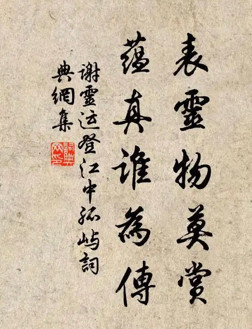 表靈物莫賞
蘊真誰為傳
謝靈运登江中孤屿詞
典網集